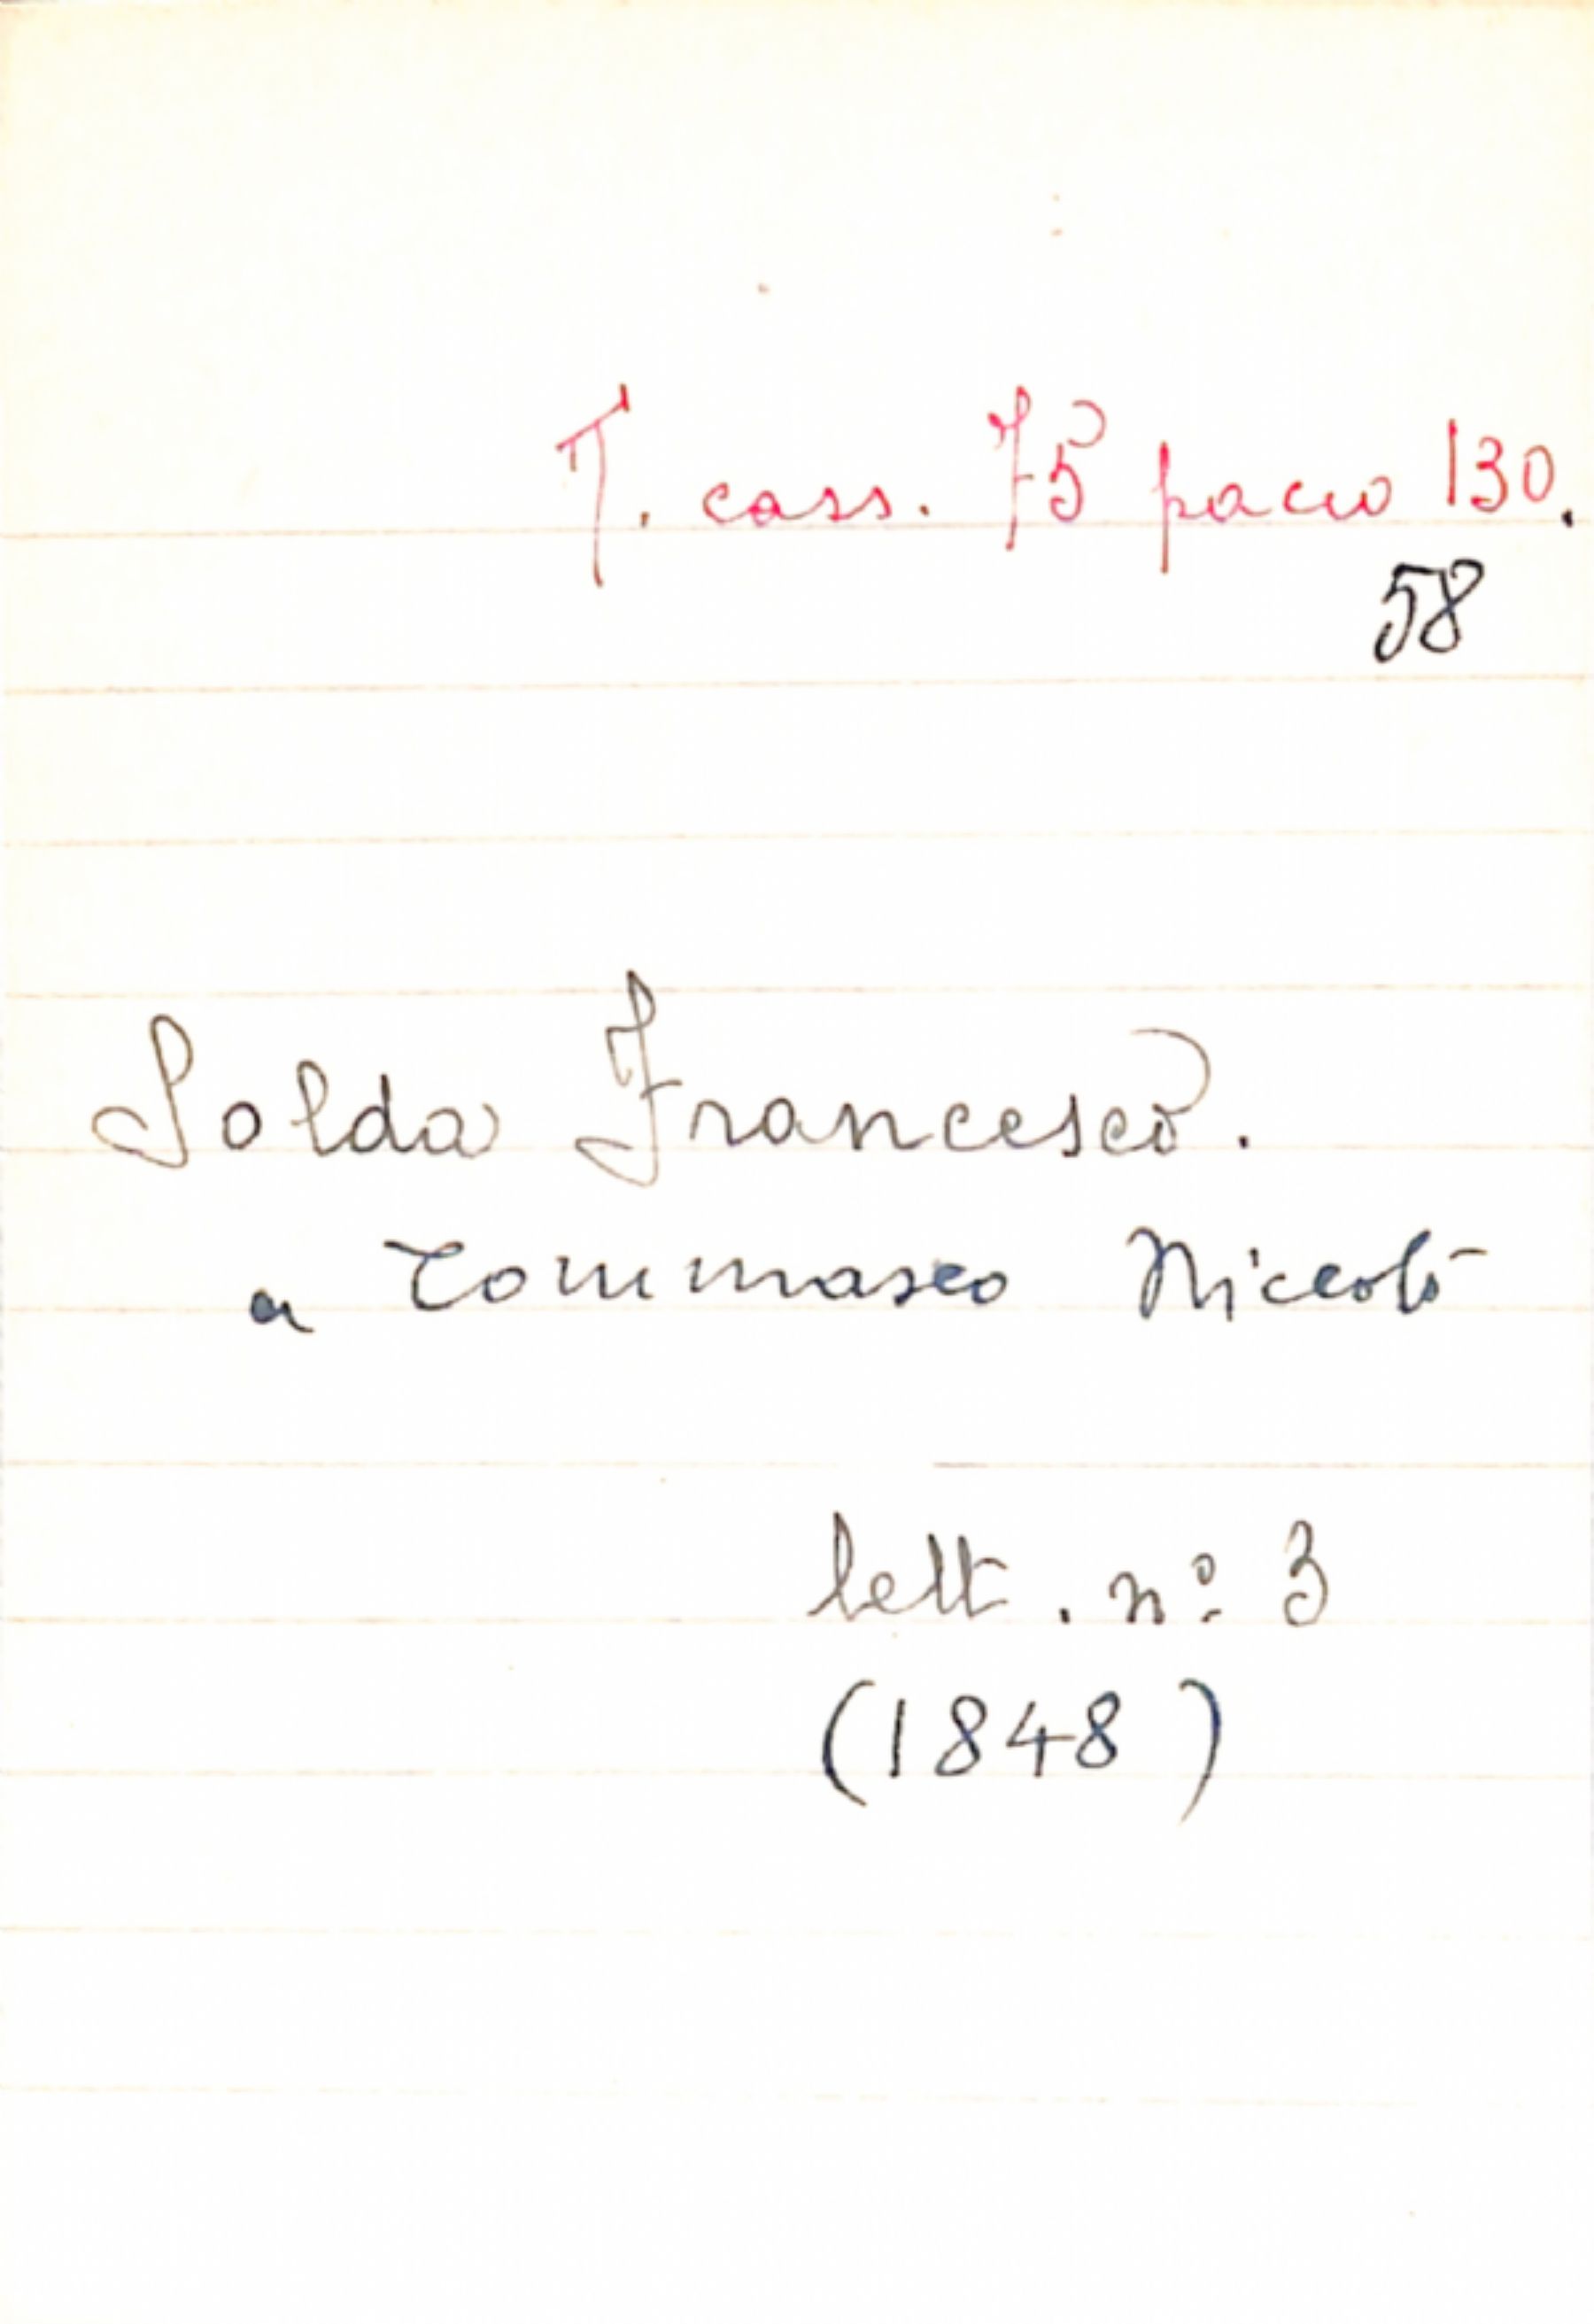 T. cass. 75 pacco 130.
58
Solda Francesco.
a Tommaseo Niccolò
lett. nº 3
(1848)